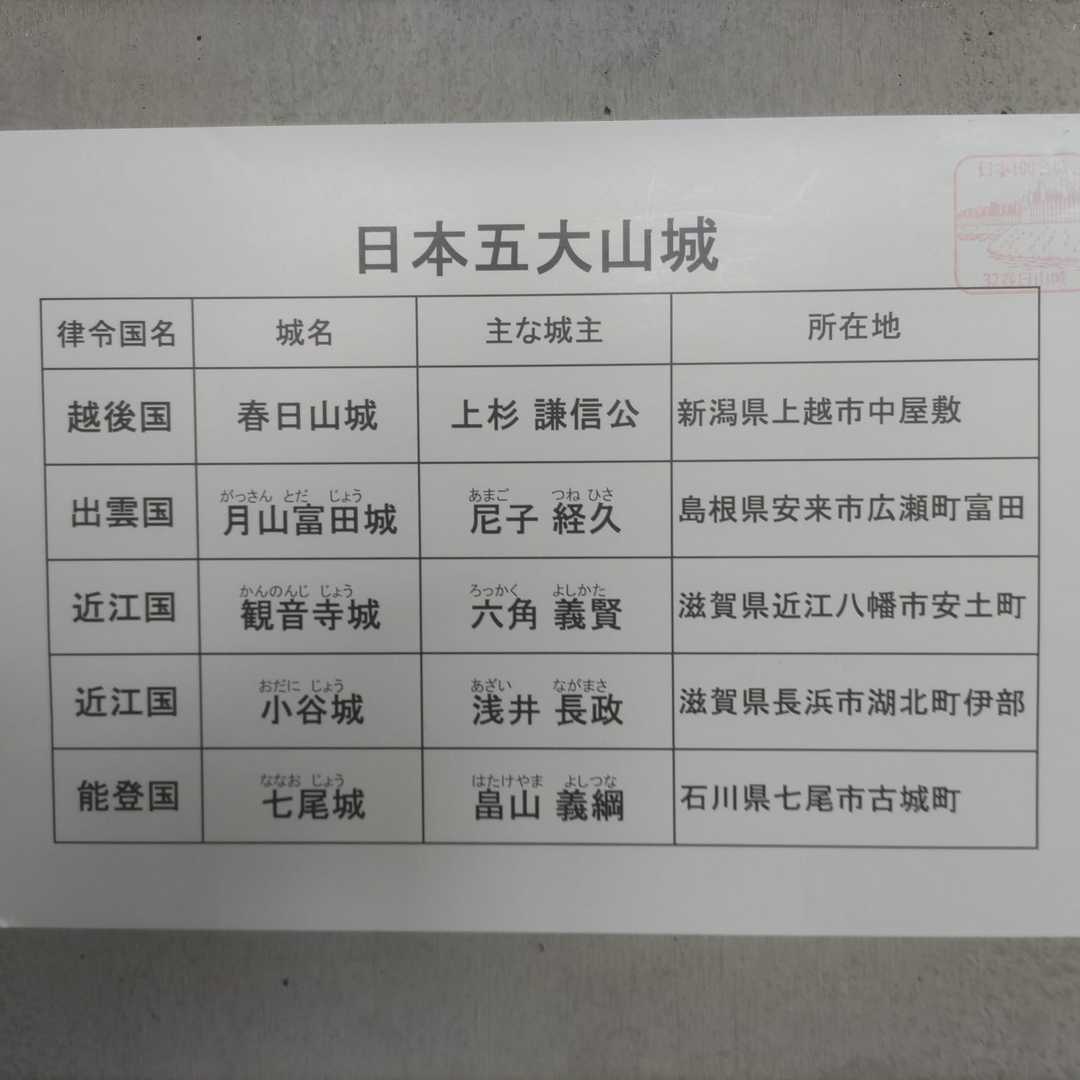 日本五大山城
律令国名 城名 主な城主 所在地
越後国 春日山城 上杉 謙信公 新潟県上越市中屋敷
がっさん とだ じょう あまご つね ひさ
出雲国 月山富田城 尼子 経久 島根県安来市広瀬町富田
かんのんじ じょう ろっかく よしかた
近江国 観音寺城 六角 義賢 滋賀県近江八幡市安土町
おだに じょう あざい ながまさ
近江国 小谷城 浅井 長政 滋賀県長浜市湖北町伊部
ななお じょう はたけやま よしつな
能登国 七尾城 畠山 義綱 石川県七尾市古城町